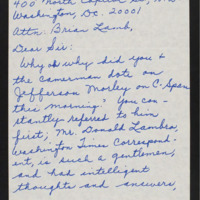 400 North Capitol St., N.W.
Washington, D.C. 20001
Attn. Brian Lamb,
Dear Sir:
Why oh why did you &
the camerman dote on
Jefferson Morley on C-Span
this morning? You con-
stantly referred to him
first; Mr. Donald Lambro,
Washington Times Correspond-
ent, is such a gentlemen,
and has intelligent
thoughts and answers,